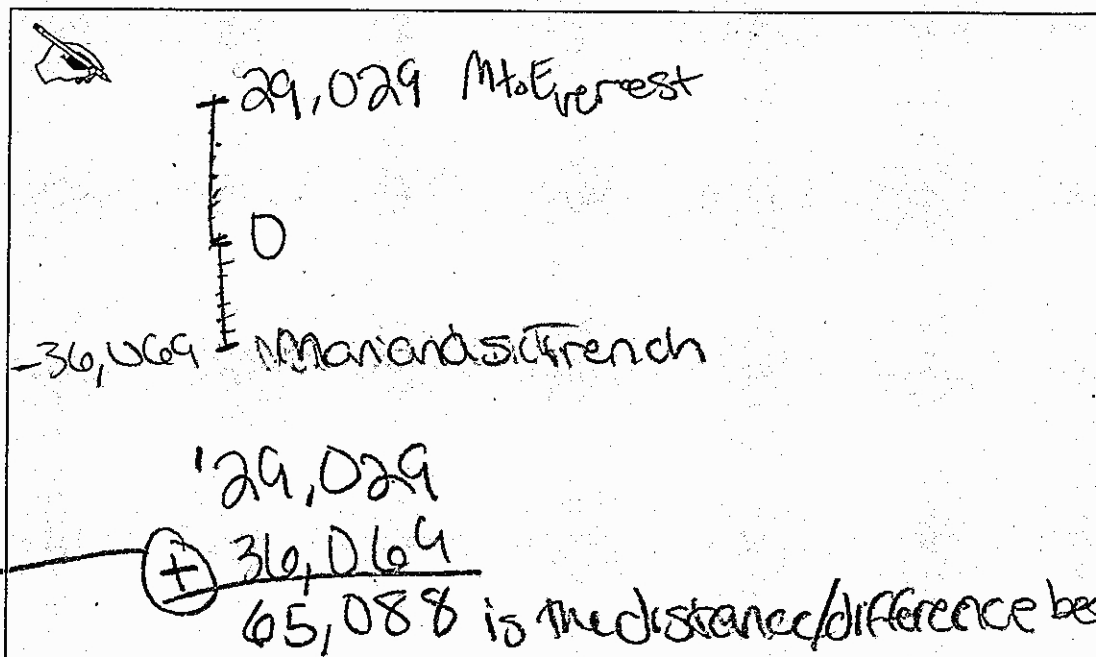 29,029 Mt. Everest
0
-36,069 Marianas Trench
29,029
+ 36,069
65,088 is the distance/difference be